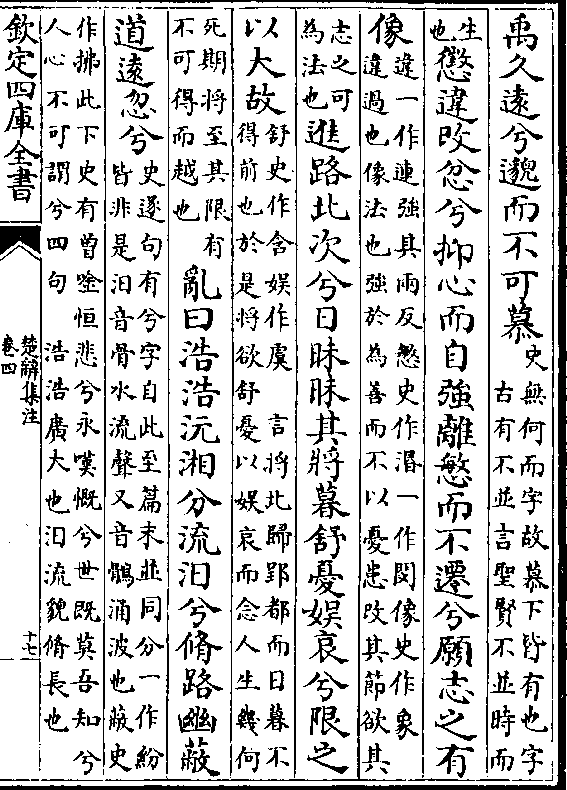 禹久遠兮邈而不可慕史無何而字故慕下皆有也字
古有不並言聖賢不並時而
生
也懲違改忿兮抑心而自強離慜而不遷兮願志之有
像違一作連強其兩反慜史作湣一作閔像史作象
違過也像法也強於為善而不以憂患改其節欲其
志之可
為法也進路北次兮日昧昧其將暮舒憂娛哀兮限之
以大故舒史作含娛作虞 言將北歸郢都而日暮不
得前也於是將欲舒憂以娛哀而念人生幾何
死期將至其限有
不可得而越也亂曰浩浩沅湘分流汨兮脩路幽蔽
道遠忽兮史遂句有兮字自此至篇末並同分一作紛
皆非是汨音骨水流聲又音鶻涌波也蔽史
作拂此下史有曾唫恒悲兮永嘆慨兮世既莫吾知兮
人心不可謂兮四句 浩浩廣大也汨流貌脩長也
欽定四庫全書
楚辭集注
卷四
十七